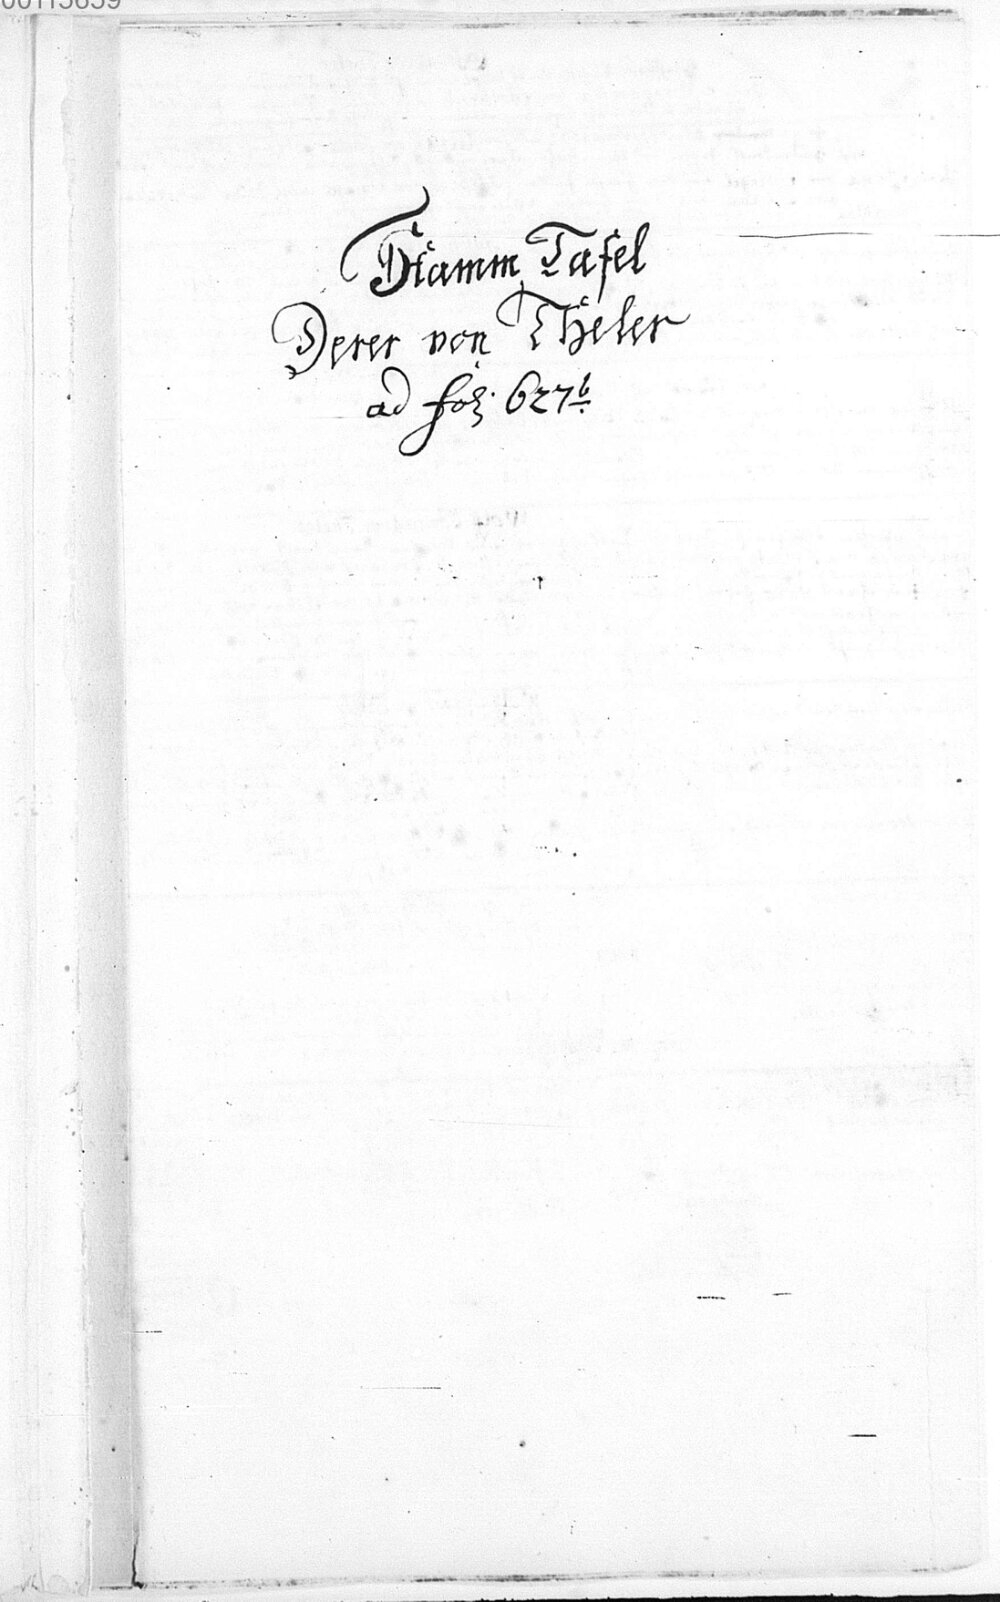 00113659
Stamm Tafel
Derer von Theler
ad fol. 627 b.